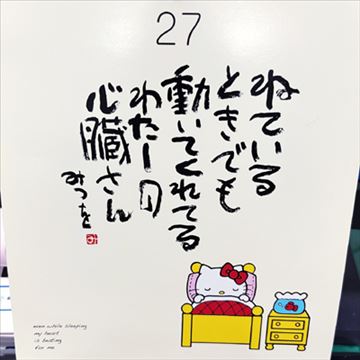 27
ねている
ときでも
動いてくれてる
わたしの
心臓さん
みつを
み
even while sleeping
my heart
is beating
for me